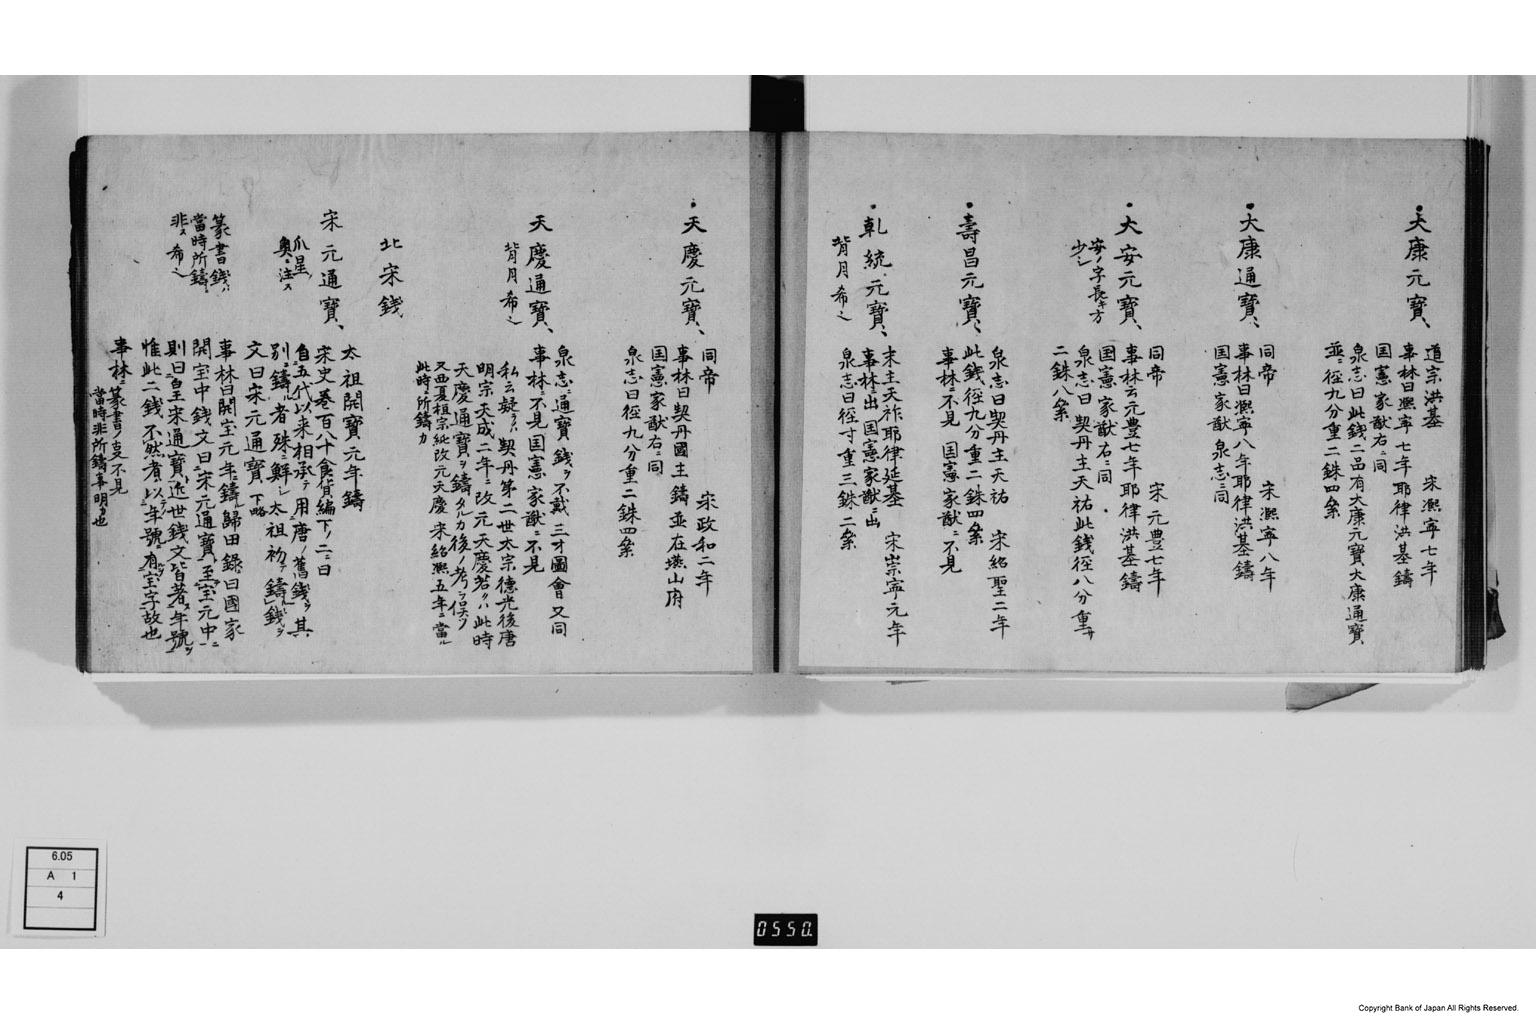 大康元寳、
道宗洪基　宋熈寧七年
事林曰熈寧七年耶律洪基鑄
国憲家猷右ニ同
泉志曰此錢二品有大康元寳大康通寳
並ニ径九分重二銖四絫
大康通寳、
同帝　宋熈寧八年
事林曰熈寧八年耶律洪基鑄
国憲家猷泉志ニ同
大安元寳、
安ノ字長キ方
少シ
同帝　宋元豊七年
事林云元豊七年耶律洪基鑄
国憲家猷右ニ同
泉志曰契丹主天祐此錢径八分重サ
二銖八絫
壽昌元寳、
泉志曰契丹主天祐　宋紹聖二年
此錢径九分重二銖四絫
事林ニ不見　国憲家猷ニ不見
乾統元寳、
背月希也
末主天祚耶律延基　宋崇寧元年
事林ニ出国憲家猷ニ出
泉志曰径寸重三銖二絫
天慶元寳、
同帝　宋政和二年
事林曰契丹國主鑄並在㷼山府
国憲家猷右ニ同
泉志曰径九分重二銖四絫
天慶通寳、
背月希也
泉志ニ通寳錢ヲ不載三才圖會又同
事林ニ不見国憲家猷ニ不見
私云疑ラクハ契丹第二世太宗德光後唐
明宗天成二年ニ改元天慶若クハ此時
天慶通寳ヲ鑄タルカ後ノ考ヲ俟ノミ
又西夏桓宗純改元天慶宋紹熈五年ニ當ル
此時ニ所鑄カ
北宋錢
宋元通寳、
爪星
奥ニ注ス
太祖開寳元年鑄
宋史巻百八十食貨編下ノ二ニ曰
自五代以来相承テ用唐ノ舊錢ヲ其
別ニ鑄ル者殊ニ鮮シ太祖初テ鑄ル錢ヲ
文曰宋元通寳 下略
篆書錢ハ
當時所鑄ニ
非ス希也
事林曰開宝元年鑄ル歸田錄曰國家
開宝中錢文曰宋元通寳至宝元中ニ
則曰皇宋通寳近世錢文皆著年號ヲ
惟此二錢不然者以年號ニ有宝字故也
事林ニ篆書ノ支不見
當時非所鑄事明カ也
6.05
A 1
4
0550.
Copyright Bank of Japan All Rights Reserved.